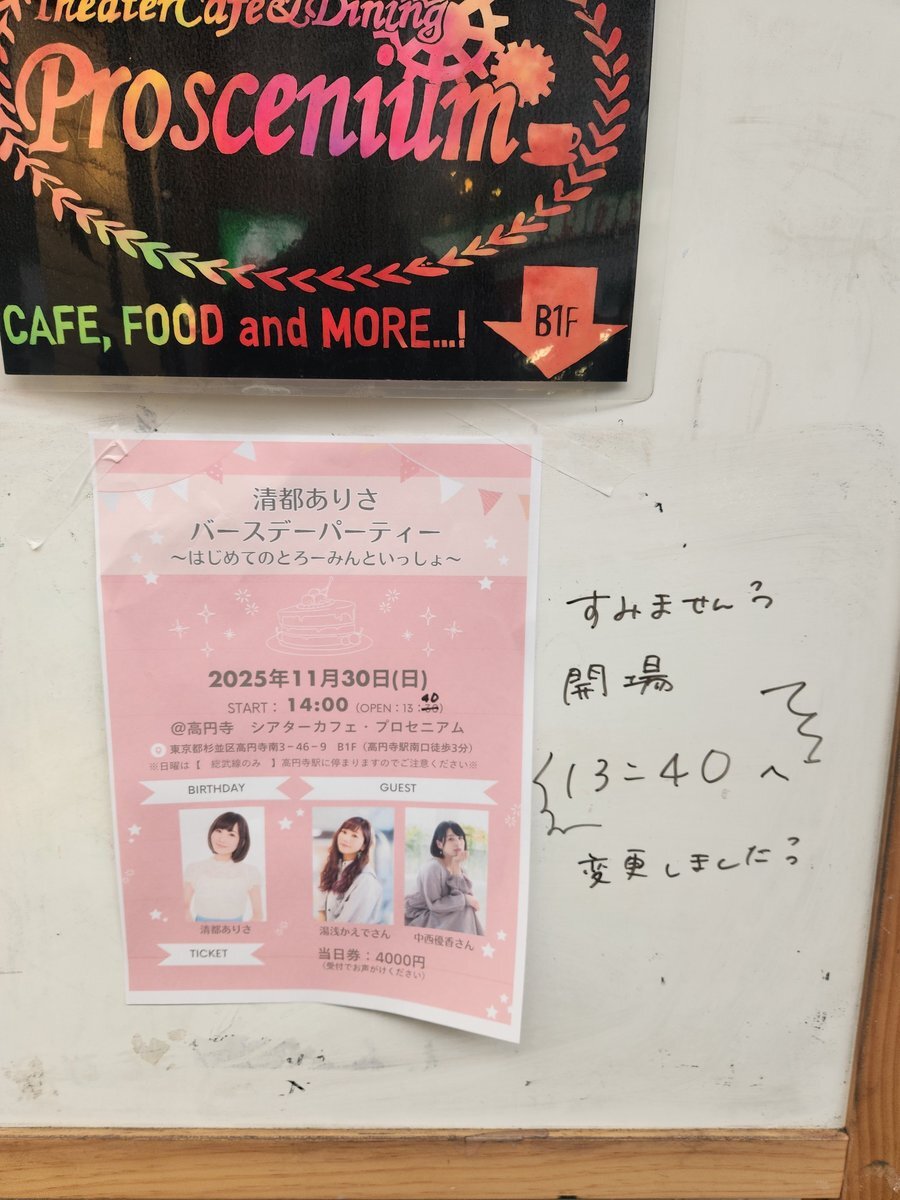 TheaterCafe&Dining
Proscenium
CAFE, FOOD and MORE...!
B1F
清都ありさ
バースデーパーティー
～はじめてのとろーみんといっしょ～
2025年11月30日(日)
START： 14:00 (OPEN：13：40)
@高円寺 シアターカフェ・プロセニアム
東京都杉並区高円寺南3－46－9 B1F（高円寺駅南口徒歩3分）
※日曜は【 総武線のみ 】高円寺駅に停まりますのでご注意ください※
BIRTHDAY
GUEST
清都ありさ
湯浅かえでさん
中西優香さん
TICKET
当日券：4000円
（受付でお声がけください）
すみませんっ
開場
13:40へ
変更しましたっ